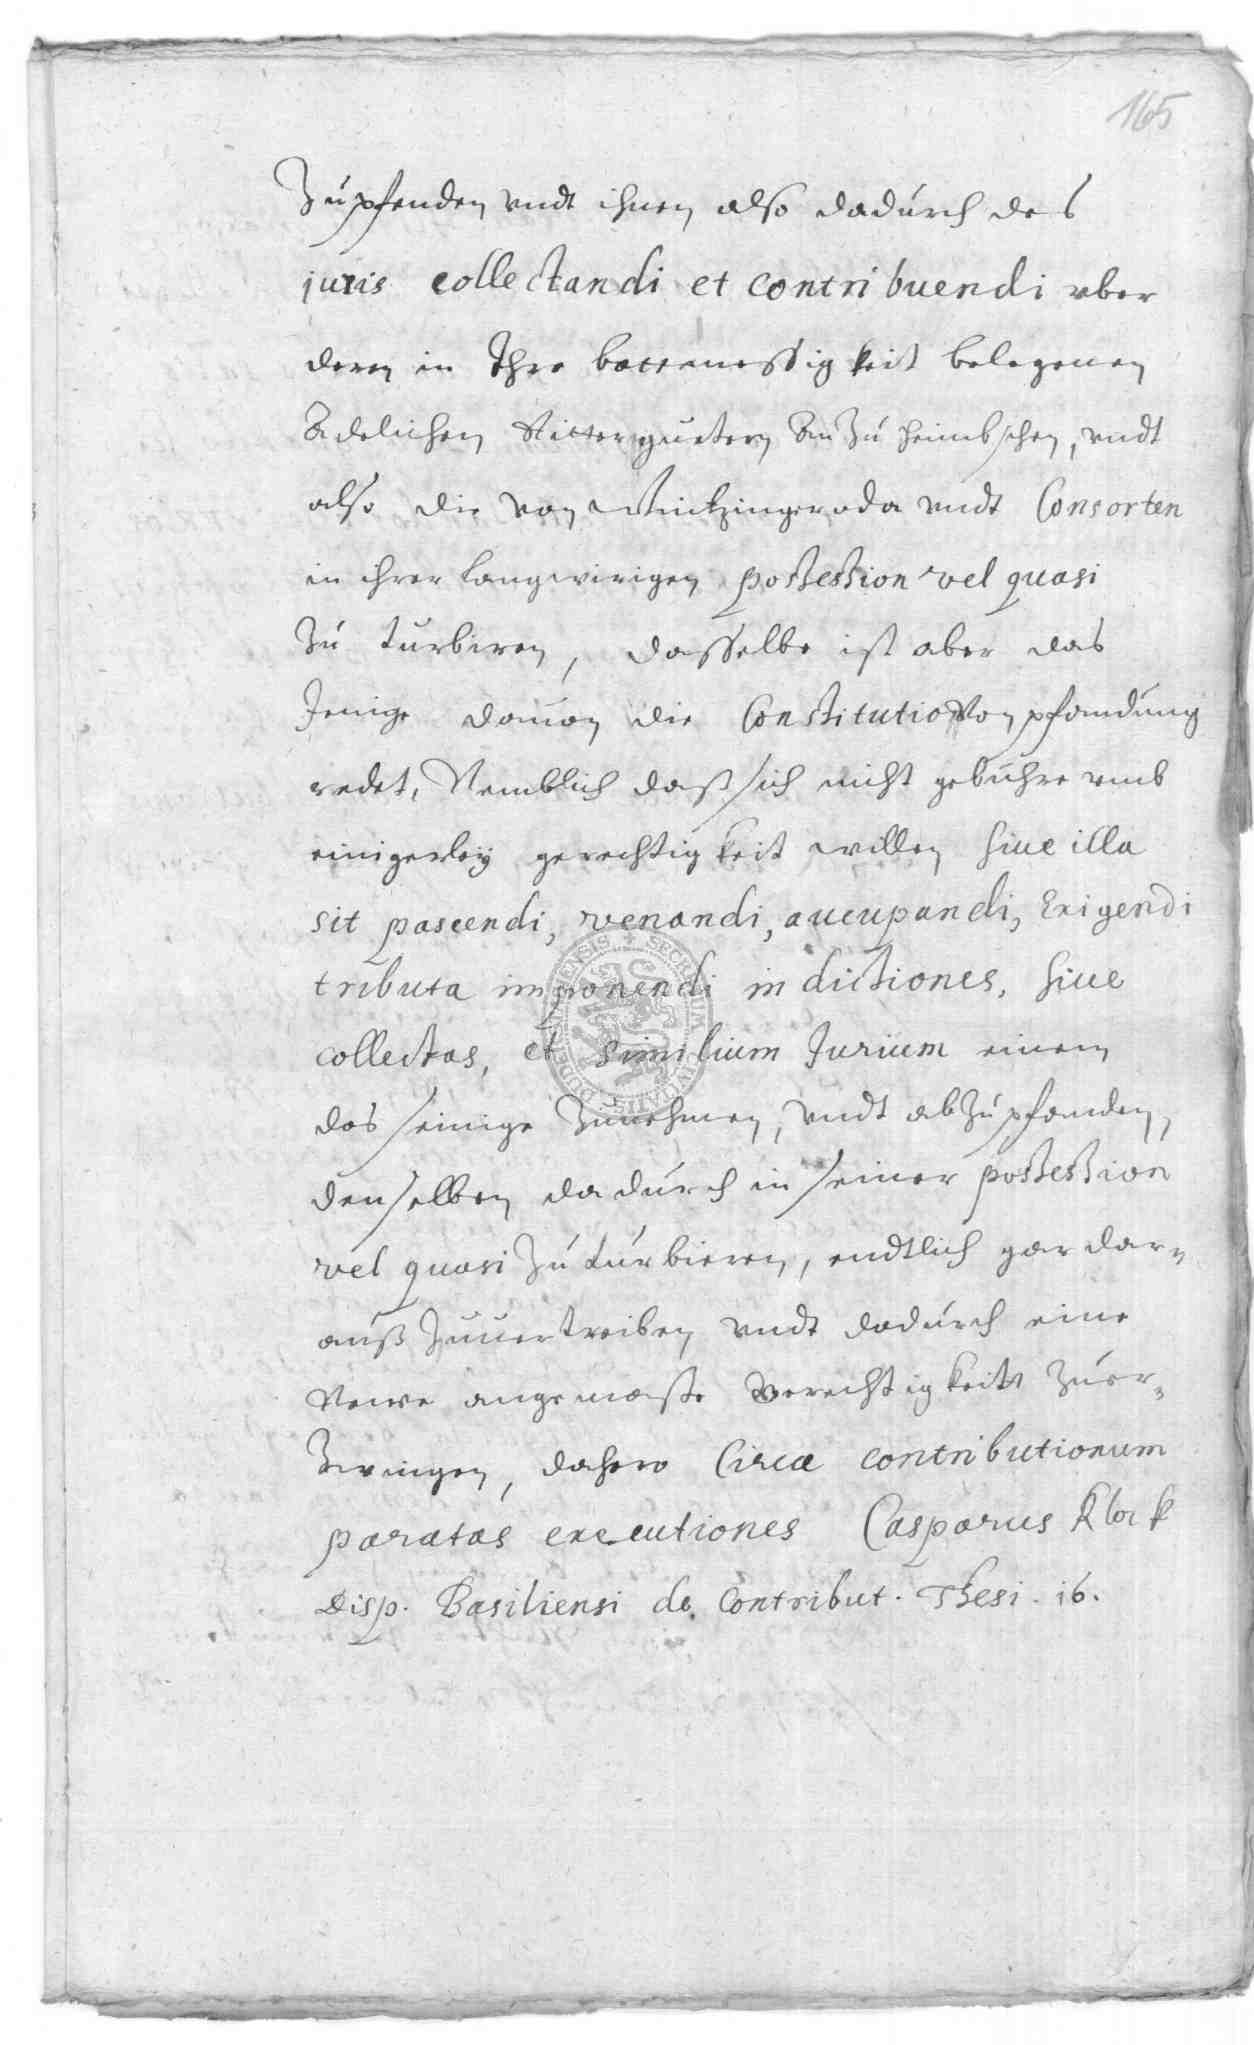 165
Zu pfenden vndt ihnen also dadurch des
juris collectandi et contribuendi vber
deren in Ihre bottmessigkeit belegenen
Adelichen Rittergüetern anzu heimbschen, vndt
also die von Wintzingeroda vndt Consorten
in ihrer langwirigen possession vel quasi
Zu turbiren, dasselbe ist aber das
Jenige dauon die Constitution Von pfandung
redet, Nemblich daß sich nicht gebuhre vmb
einigerley gerechtigkeit willen siue illa
sit pascendi, venandi, aucupandi, Exigendi
tributa imponendi indictiones, siue
collectas, et similium Jurium einem
das seinige Zunehmen, vndt abZupfanden,
denselben dadurch in seiner possession
vel quasi Zu turbieren, endtlich gar dar-
auß Zuuertreiben vndt dadurch eine
Newe angemaste Gerechtigkeit Zuer-
Zwingen, dahero Circa contributionum
paratas executiones Casparus Klock
Disp. Basiliensi de Contribut. Thesi. 16.